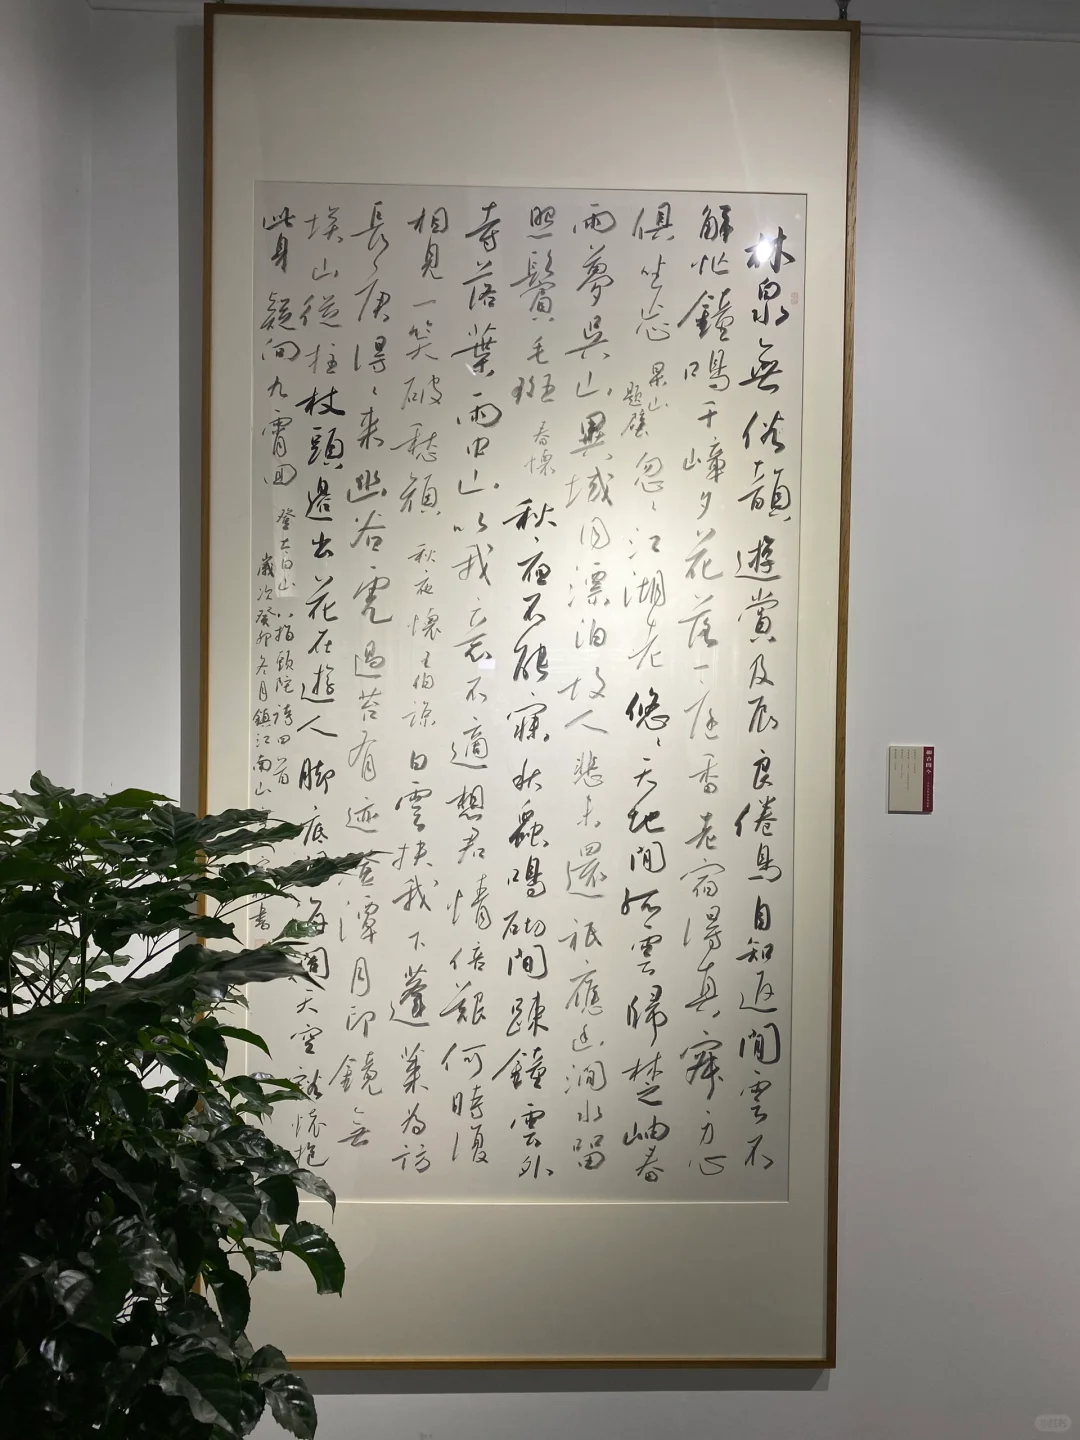 林泉無俗韻遊賞及辰良倦鳥自知返閒雲不
解忙鐘鳴千嶂夕花落一庭香老宿得真心
俱坐忘 果山題壁 忽々江湖老悠々天地間孤雲歸楚岫春
雨夢吳山異域同漂泊故人悲未還祇應幽澗水留
照鬢毛斑 春懷 秋夜不能寐秋蟲鳴砌間疎鐘雲外
寺落葉雨中山以我不適想君情倍艱何時復
相見一笑破愁顏 秋夜懷王伯諒 白雲扶我下蓬萊為訪
長庚得々來幽谷虎過苔有迹金潭月印鏡無
埃山從拄杖頭邊出花在遊人腳底海闊天空豁懷抱
此身疑向九霄回 登太白山 八指頭陀詩四首
歲次癸卯冬月鎮江南山書